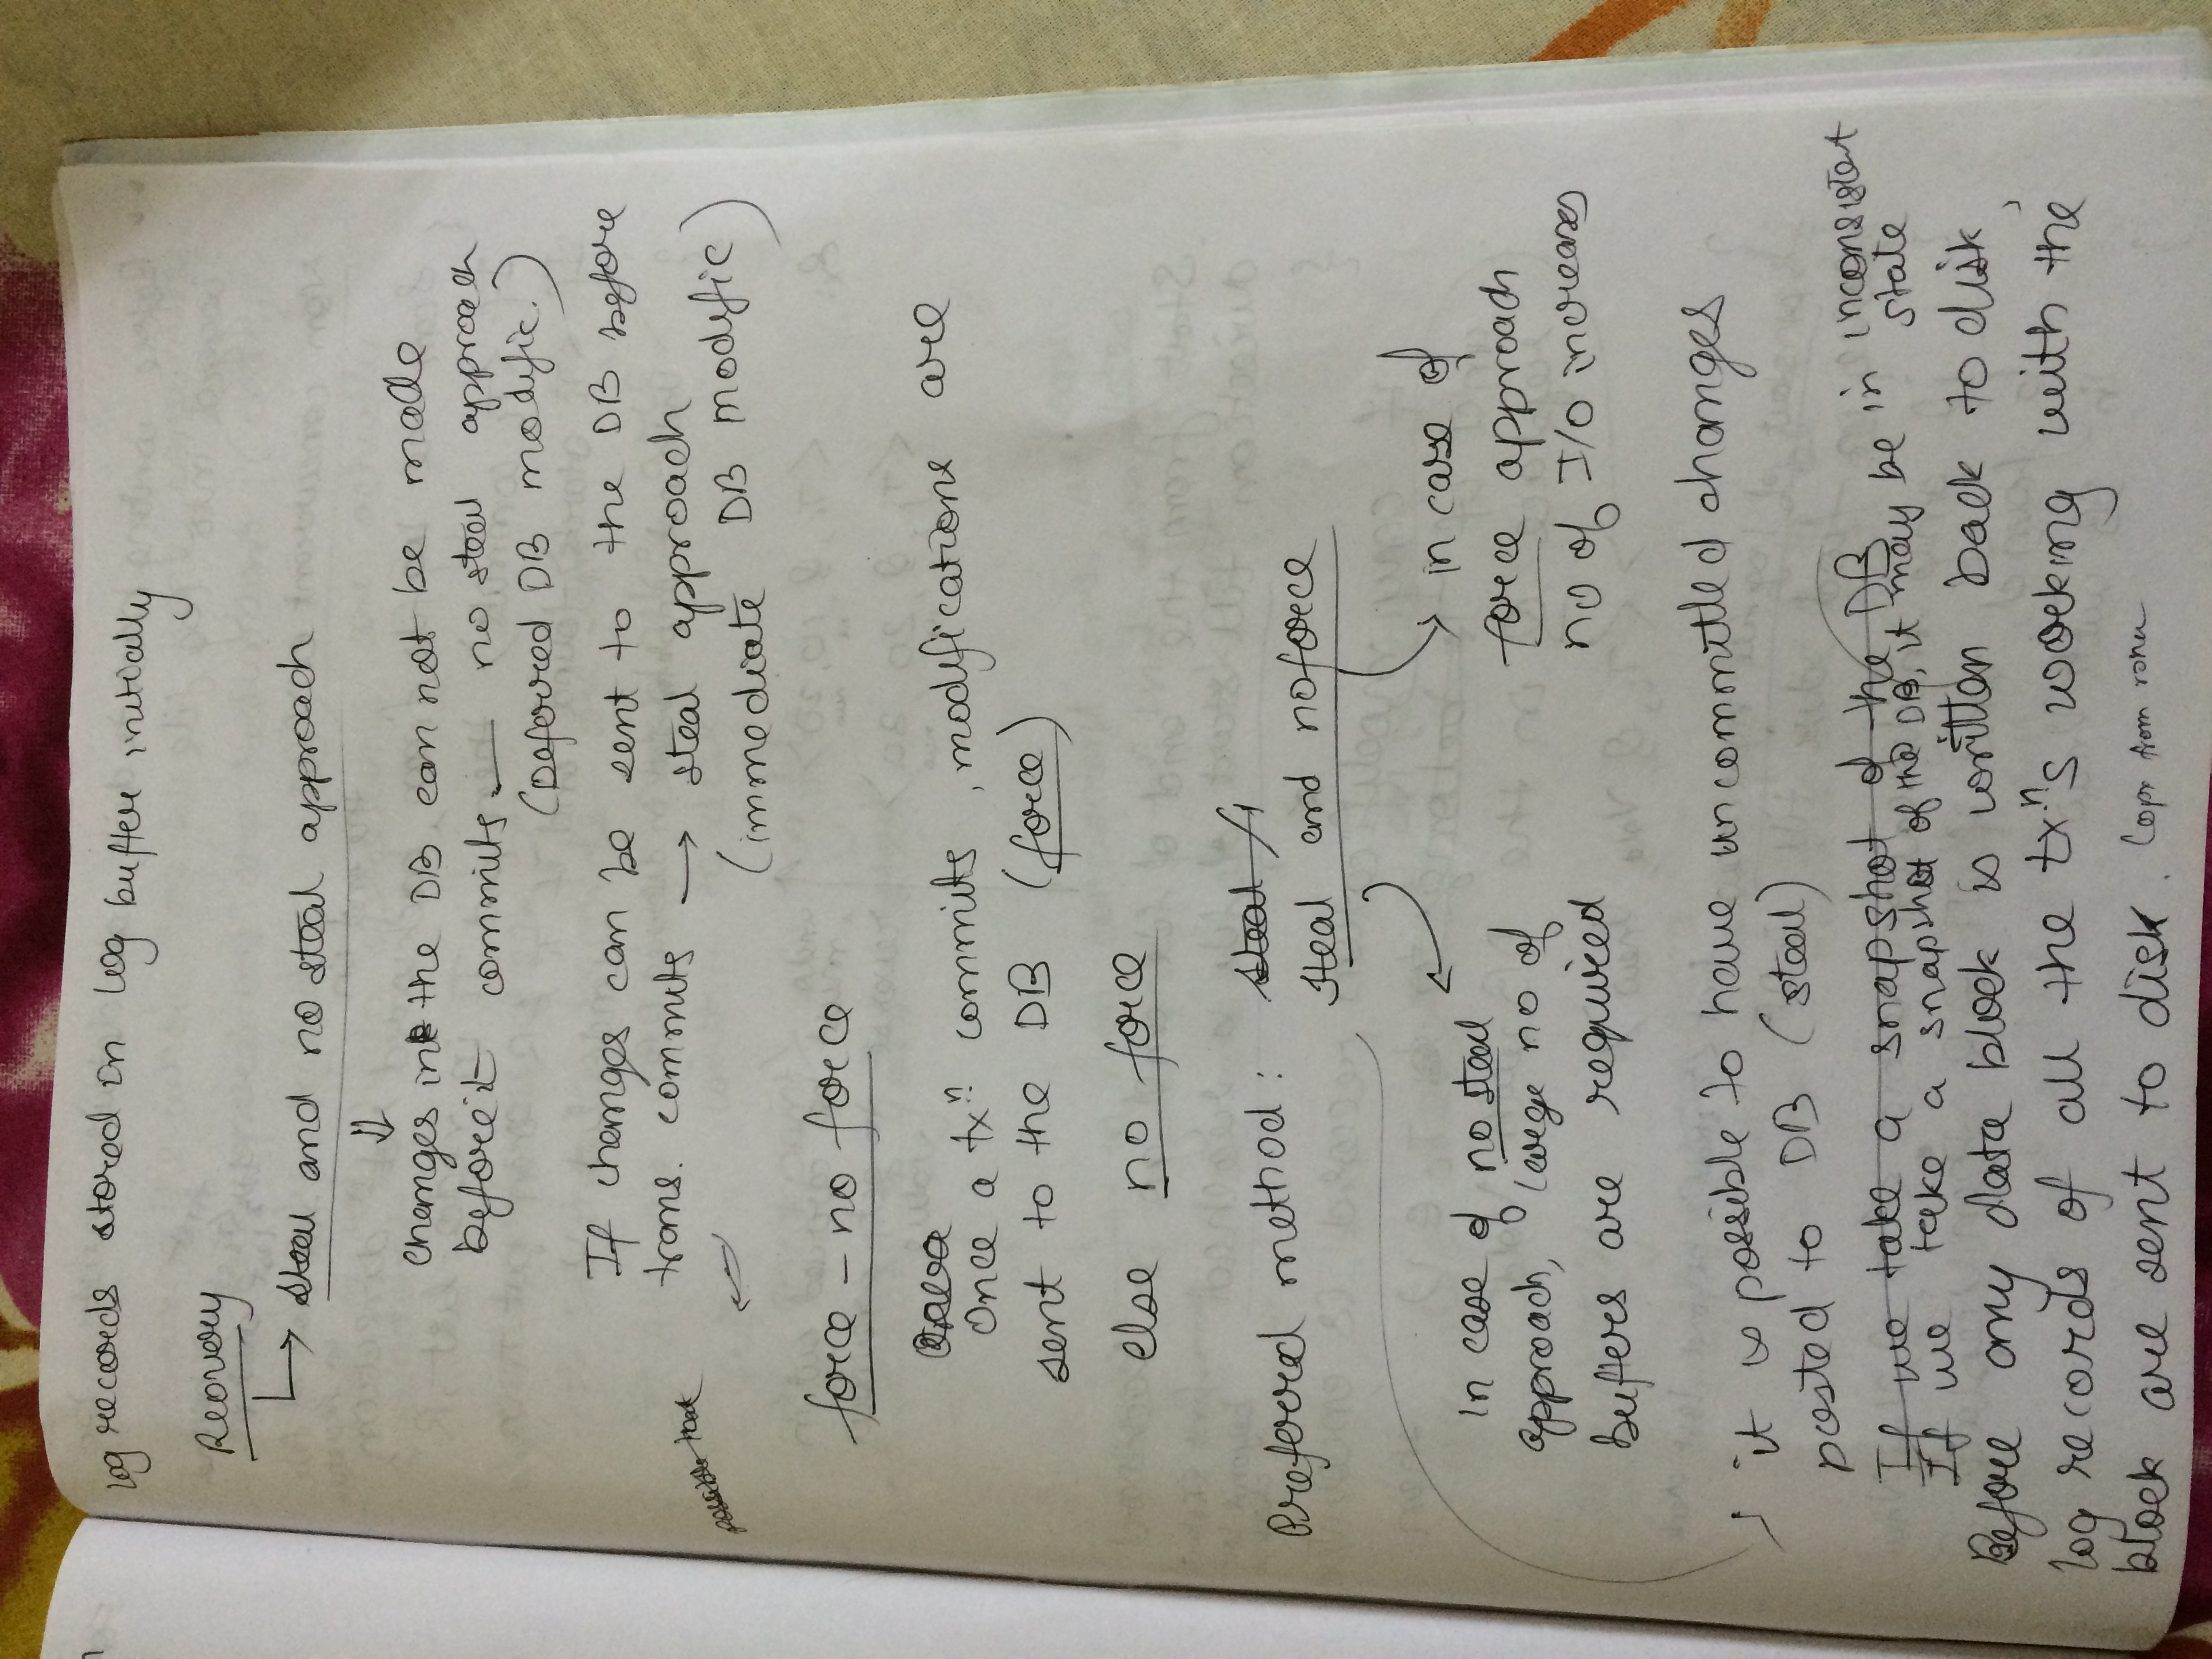 log records stored in log buffer initially
Reovery
steal and no steal approach
changes in the DB can not be made
before it commits — no steal approach
(Deferred DB modific.)
If changes can be sent to the DB before
trans. commits → steal approach
possible that
(immediate DB modific)
force - no force
Once a txn commits, modifications are
sent to the DB (force)
else no force
Preferred method: steal /
steal and no force
In case of no steal
approach, large no of
buffers are required
in case of
force approach
no of I/O increases
it is possible to have uncommitted changes
posted to DB (steal)
If we take a snapshot of the DB
If we take a snapshot of the DB, it may be in inconsistent
state
Before any data block is written back to disk,
log records of all the txn's working with the
block are sent to disk. from